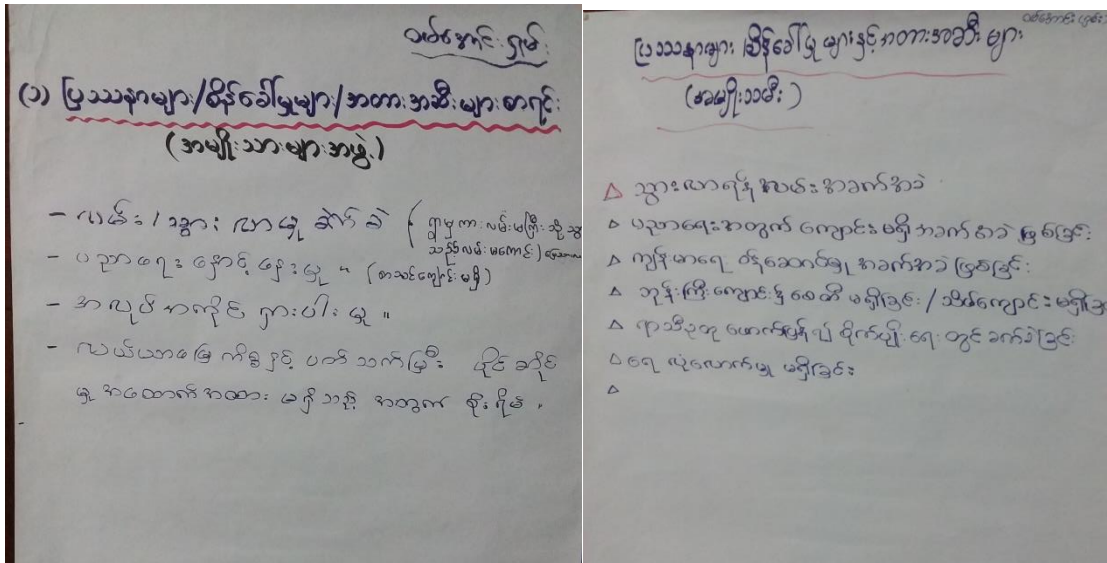 ဝမ်အောင်းရှမ်း
(၁) ပြဿနာများ/စိန်ခေါ်မှုများ/အတားအဆီးများစာရင်း
(အမျိုးသားများအဖွဲ့)
- လမ်း/သွားလာမှု ခက်ခဲ (ရွာမှကားလမ်းမကြီးသို့သွား
သည့်လမ်းမကောင်း)
- ပညာရေး နှောင့်နှေးမှု " (စာသင်ကျောင်းမရှိ)
- အလုပ်အကိုင် ရှားပါးမှု "
- လယ်ယာမြေကိစ္စနှင့် ပတ်သက်ပြီး ပိုင်ဆိုင်
မှု အထောက်အထား မရှိသည့် အတွက် စိုးရိမ်
ပြဿနာများ၊ စိန်ခေါ်မှုများနှင့်အတားအဆီးများ
(အမျိုးသမီး)
သွားလာရန်လမ်းအခက်အခဲ
ပညာရေးအတွက် ကျောင်းမရှိအခက်အခဲ ဖြစ်ခြင်း
ကျန်းမာရေး ဝန်ဆောင်မှု အခက်အခဲဖြစ်ခြင်း
ဘုန်းကြီးကျောင်းနှင့် စေတီ မရှိခြင်း/
ရာသီဥတု ဖောက်ပြန်၍ စိုက်ပျိုးရေးတွင် ခက်ခဲခြင်း
ရေ လုံလောက်မှု မရှိခြင်း